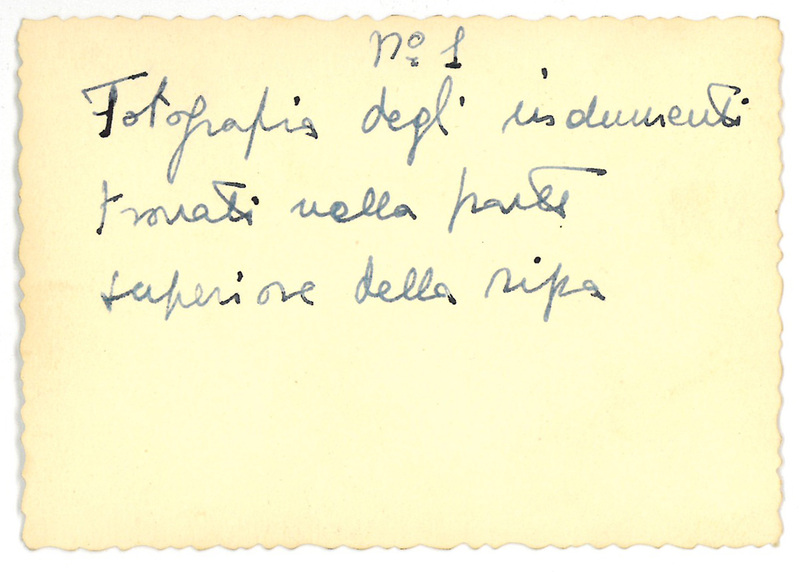 Nº 1
Fotografia degli indumenti
trovati nella parte
superiore della ripa